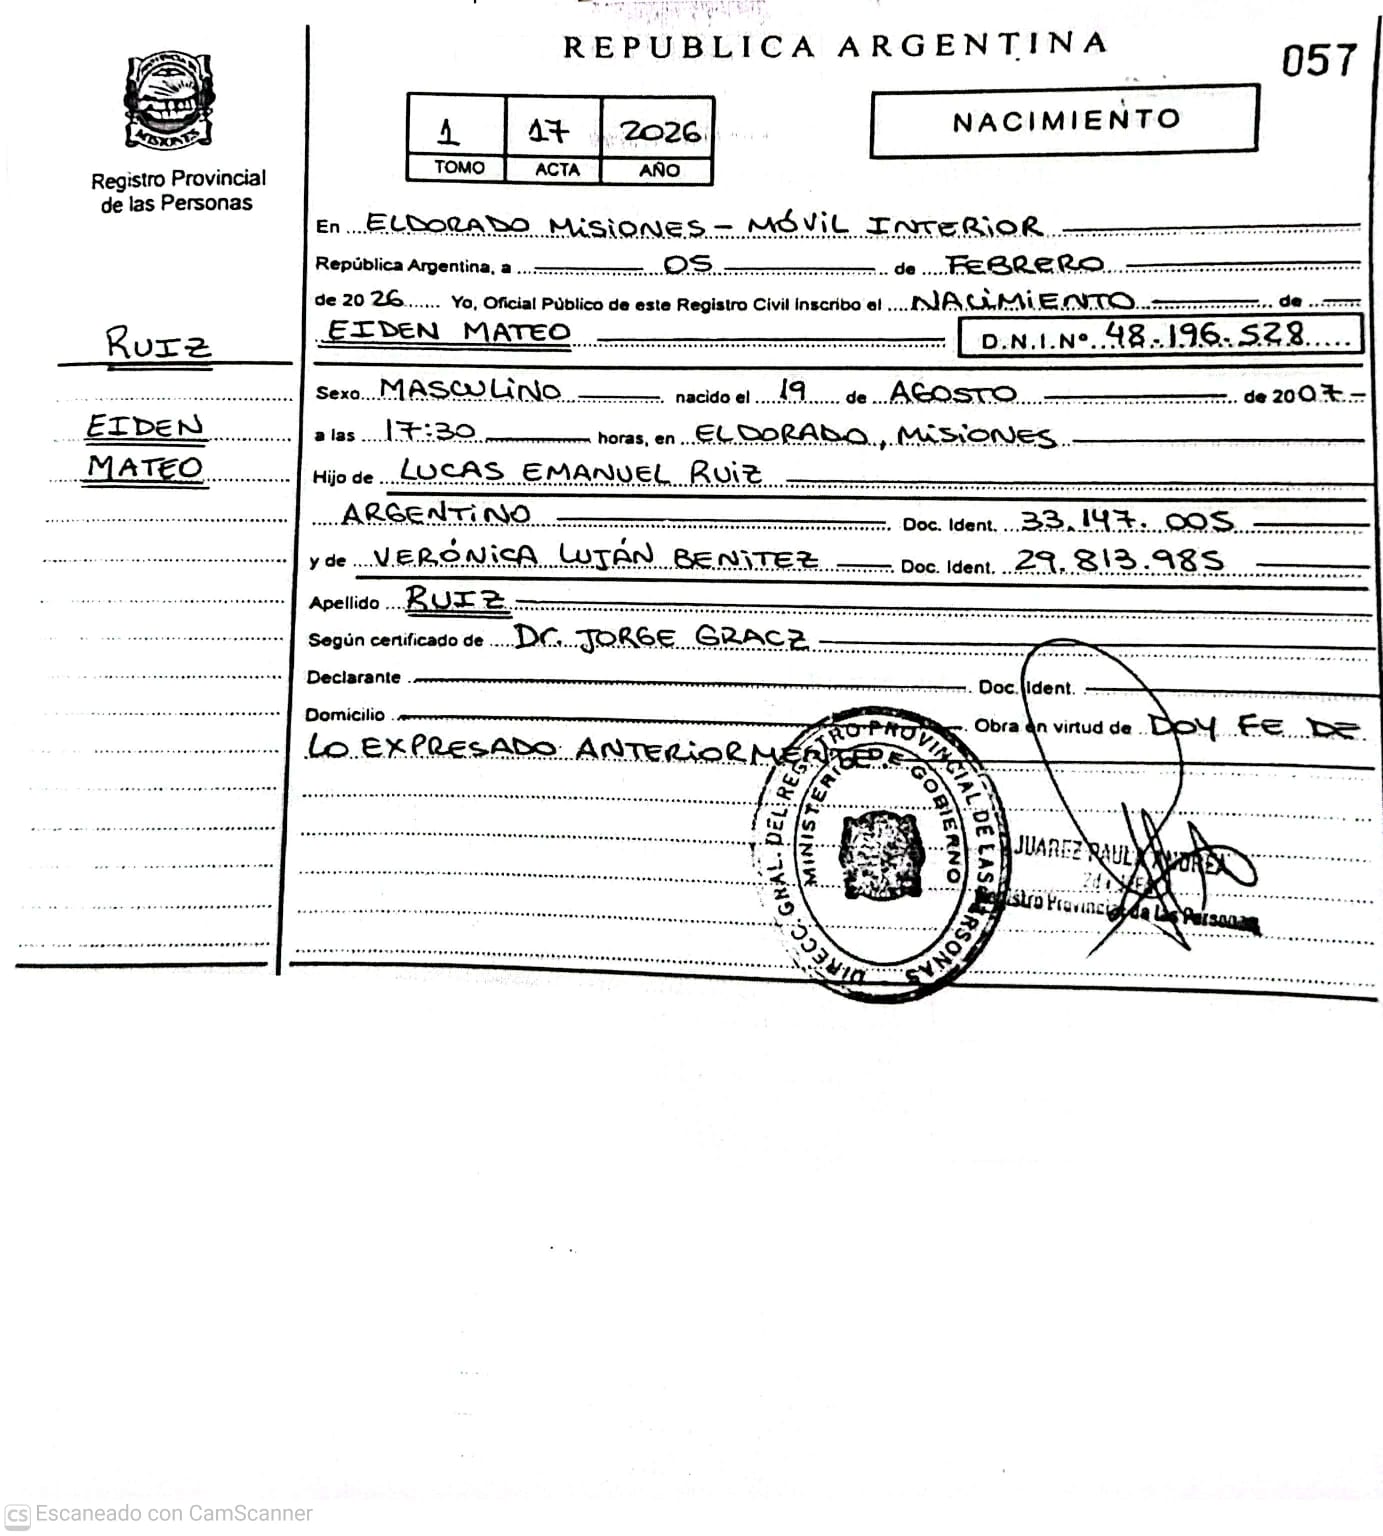 REPUBLICA ARGENTINA
057
PROVINCIA DE
MISIONES
Registro Provincial
de las Personas
1 17 2026
TOMO ACTA AÑO
NACIMIENTO
En ELDORADO MISIONES - MÓVIL INTERIOR
República Argentina, a 05 de FEBRERO
de 2026 Yo, Oficial Público de este Registro Civil Inscribo el NACIMIENTO de
EIDEN MATEO D.N.I.Nº 48.196.528
RUIZ
EIDEN
MATEO
Sexo MASCULINO nacido el 19 de AGOSTO de 2007-
a las 17:30 horas, en ELDORADO, MISIONES
Hijo de LUCAS EMANUEL RUIZ
ARGENTINO Doc. Ident. 33.147.005
y de VERÓNICA LUJÁN BENITEZ Doc. Ident. 29.813.985
Apellido RUIZ
Según certificado de Dr. JORGE GRACZ
Declarante Doc. Ident.
Domicilio Obra en virtud de DOY FE DE
LO EXPRESADO ANTERIORMENTE.
DIRECC. GRAL. DEL REGISTRO PROVINCIAL DE LAS PERSONAS
MINISTERIO DE GOBIERNO
JUAREZ PAULA ANDREA
Registro Provincial de las Personas
CS Escaneado con CamScanner